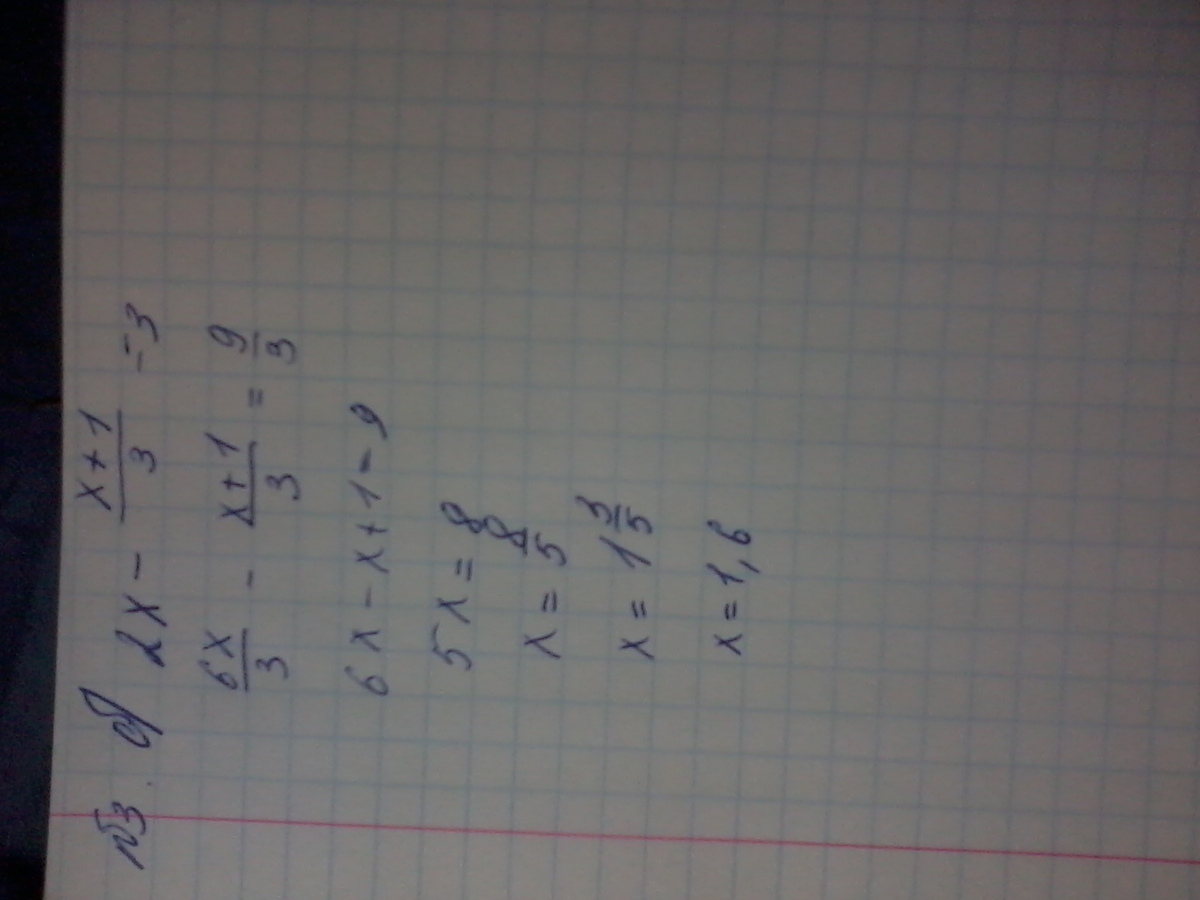 №3. б) 2x - (x+1)/3 = 3
6x/3 - (x+1)/3 = 9/3
6x - x + 1 = 9
5x = 8
x = 8/5
x = 1 3/5
x = 1,6